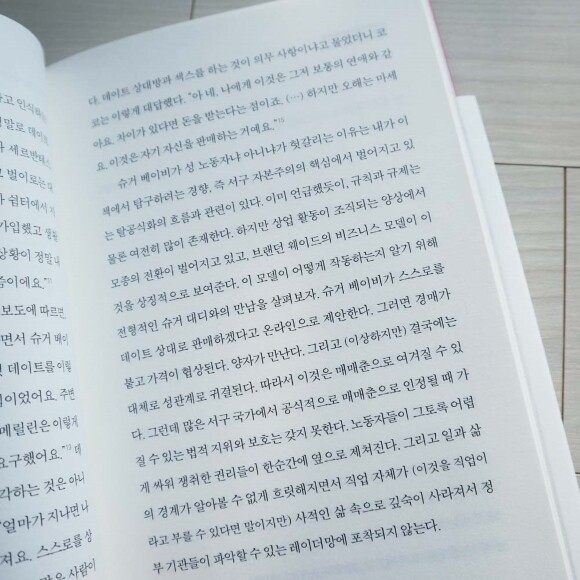 고 인식하
말로 데이트
세르반테스
고 벌이로는 대
쉼터에서 지
가입했고 생활
상황이 정말 내
이에요."
보도에 따르면,
면서 슈거 베이
데이트를 이틀
이었어요. 주변
메릴린은 이렇게
요구했어요."¹³ 데
각하는 것은 아니
얼마가 지나면 나
져요. 스스로를 상
은 사람이
다. 데이트 상대방과 섹스를 하는 것이 의무 사항이냐고 물었더니 코
로는 이렇게 대답했다. "아 네. 나에게 이것은 그저 보통의 연애와 같
아요. 차이가 있다면 돈을 받는다는 점이죠. (…) 하지만 오해는 마세
요. 이것은 자기 자신을 판매하는 거예요."¹⁵
슈거 베이비가 성 노동자냐 아니냐가 헷갈리는 이유는 내가 이
책에서 탐구하려는 경향, 즉 서구 자본주의의 핵심에서 벌어지고 있
는 탈공식화의 흐름과 관련이 있다. 이미 언급했듯이, 규칙과 규제는
물론 여전히 많이 존재한다. 하지만 상업 활동이 조직되는 양상에서
모종의 전환이 벌어지고 있고, 브랜던 웨이드의 비즈니스 모델이 이
것을 상징적으로 보여준다. 이 모델이 어떻게 작동하는지 알기 위해
전형적인 슈거 대디와의 만남을 살펴보자. 슈거 베이비가 스스로를
데이트 상대로 판매하겠다고 온라인으로 제안한다. 그러면 경매가
붙고 가격이 협상된다. 양자가 만난다. 그리고 (이상하지만) 결국에는
대체로 성관계로 귀결된다. 따라서 이것은 매매춘으로 여겨질 수 있
다. 그런데 많은 서구 국가에서 공식적으로 매매춘으로 인정될 때 가
질 수 있는 법적 지위와 보호는 갖지 못한다. 노동자들이 그토록 어렵
게 싸워 쟁취한 권리들이 한순간에 옆으로 제쳐진다. 그리고 일과 삶
의 경계가 알아볼 수 없게 흐릿해지면서 직업 자체가 (이것을 직업이
라고 부를 수 있다면 말이지만) 사적인 삶 속으로 깊숙이 사라져서 정
부 기관들이 파악할 수 있는 레이더망에 포착되지 않는다.